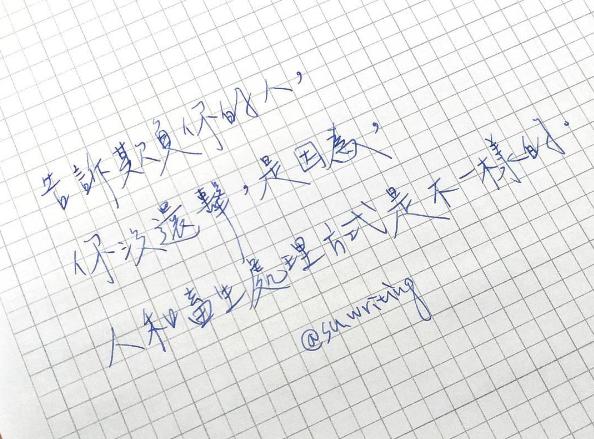 告訴欺負你的人，
你沒還擊，是因為，
人和畜生處理方式是不一樣的.
@su.writing